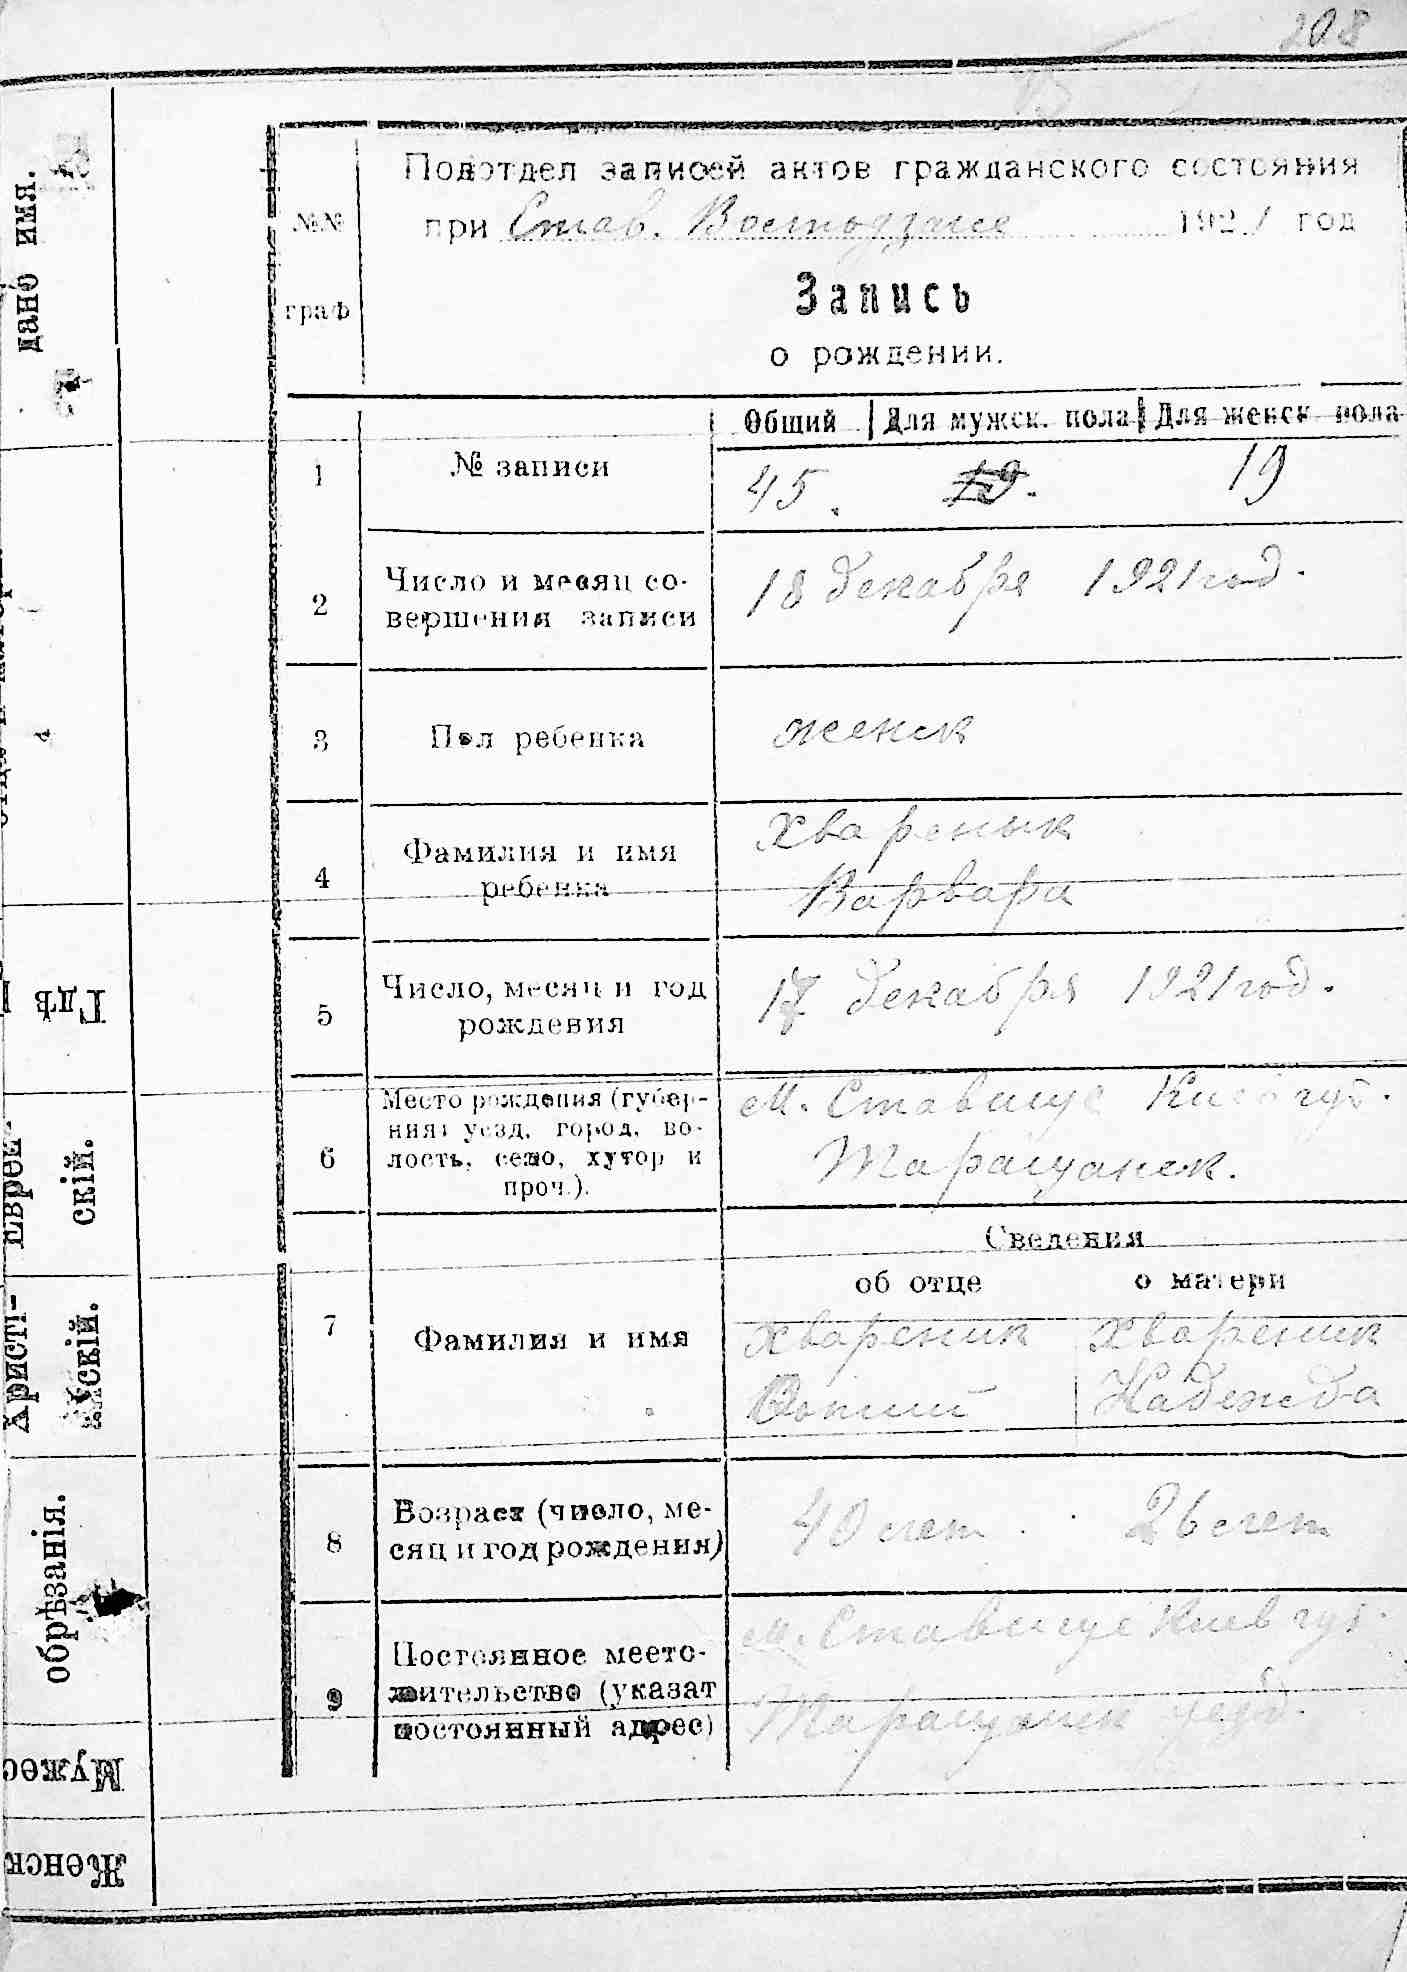 208
Подотдел записей актов гражданского состояния
при Став. 1921 год
№№ граф
Запись
о рождении.
Общий Для мужск. пола Для женск пола
1 № записи 45. 19. 19
2 Число и месяц со-
вершения записи 18 декабря 1921 год.
3 Пол ребенка женск
4 Фамилия и имя
ребенка
Хвареник
Варвара
5 Число, месяц и год
рождения 17 декабря 1921 год.
6 Место рождения (губер-
ния уезд, город, во-
лость, село, хутор и
проч.).
м. Ставище Киев губ.
Таращанск.
Сведения
об отце о матери
7 Фамилия и имя
Хвареник Хвареник
Надежда
8 Возраст (число, ме-
сяц и год рождения) 40 лет 26 лет
9 Постоянное место-
жительство (указат
постоянный адрес)
м. Ставище Киев губ.
Таращанск уезд.
дано имя.
Гдѣ
Еврей-
скій.
Христі-
нскій.
обрѣзанія.
Мужес
Женск